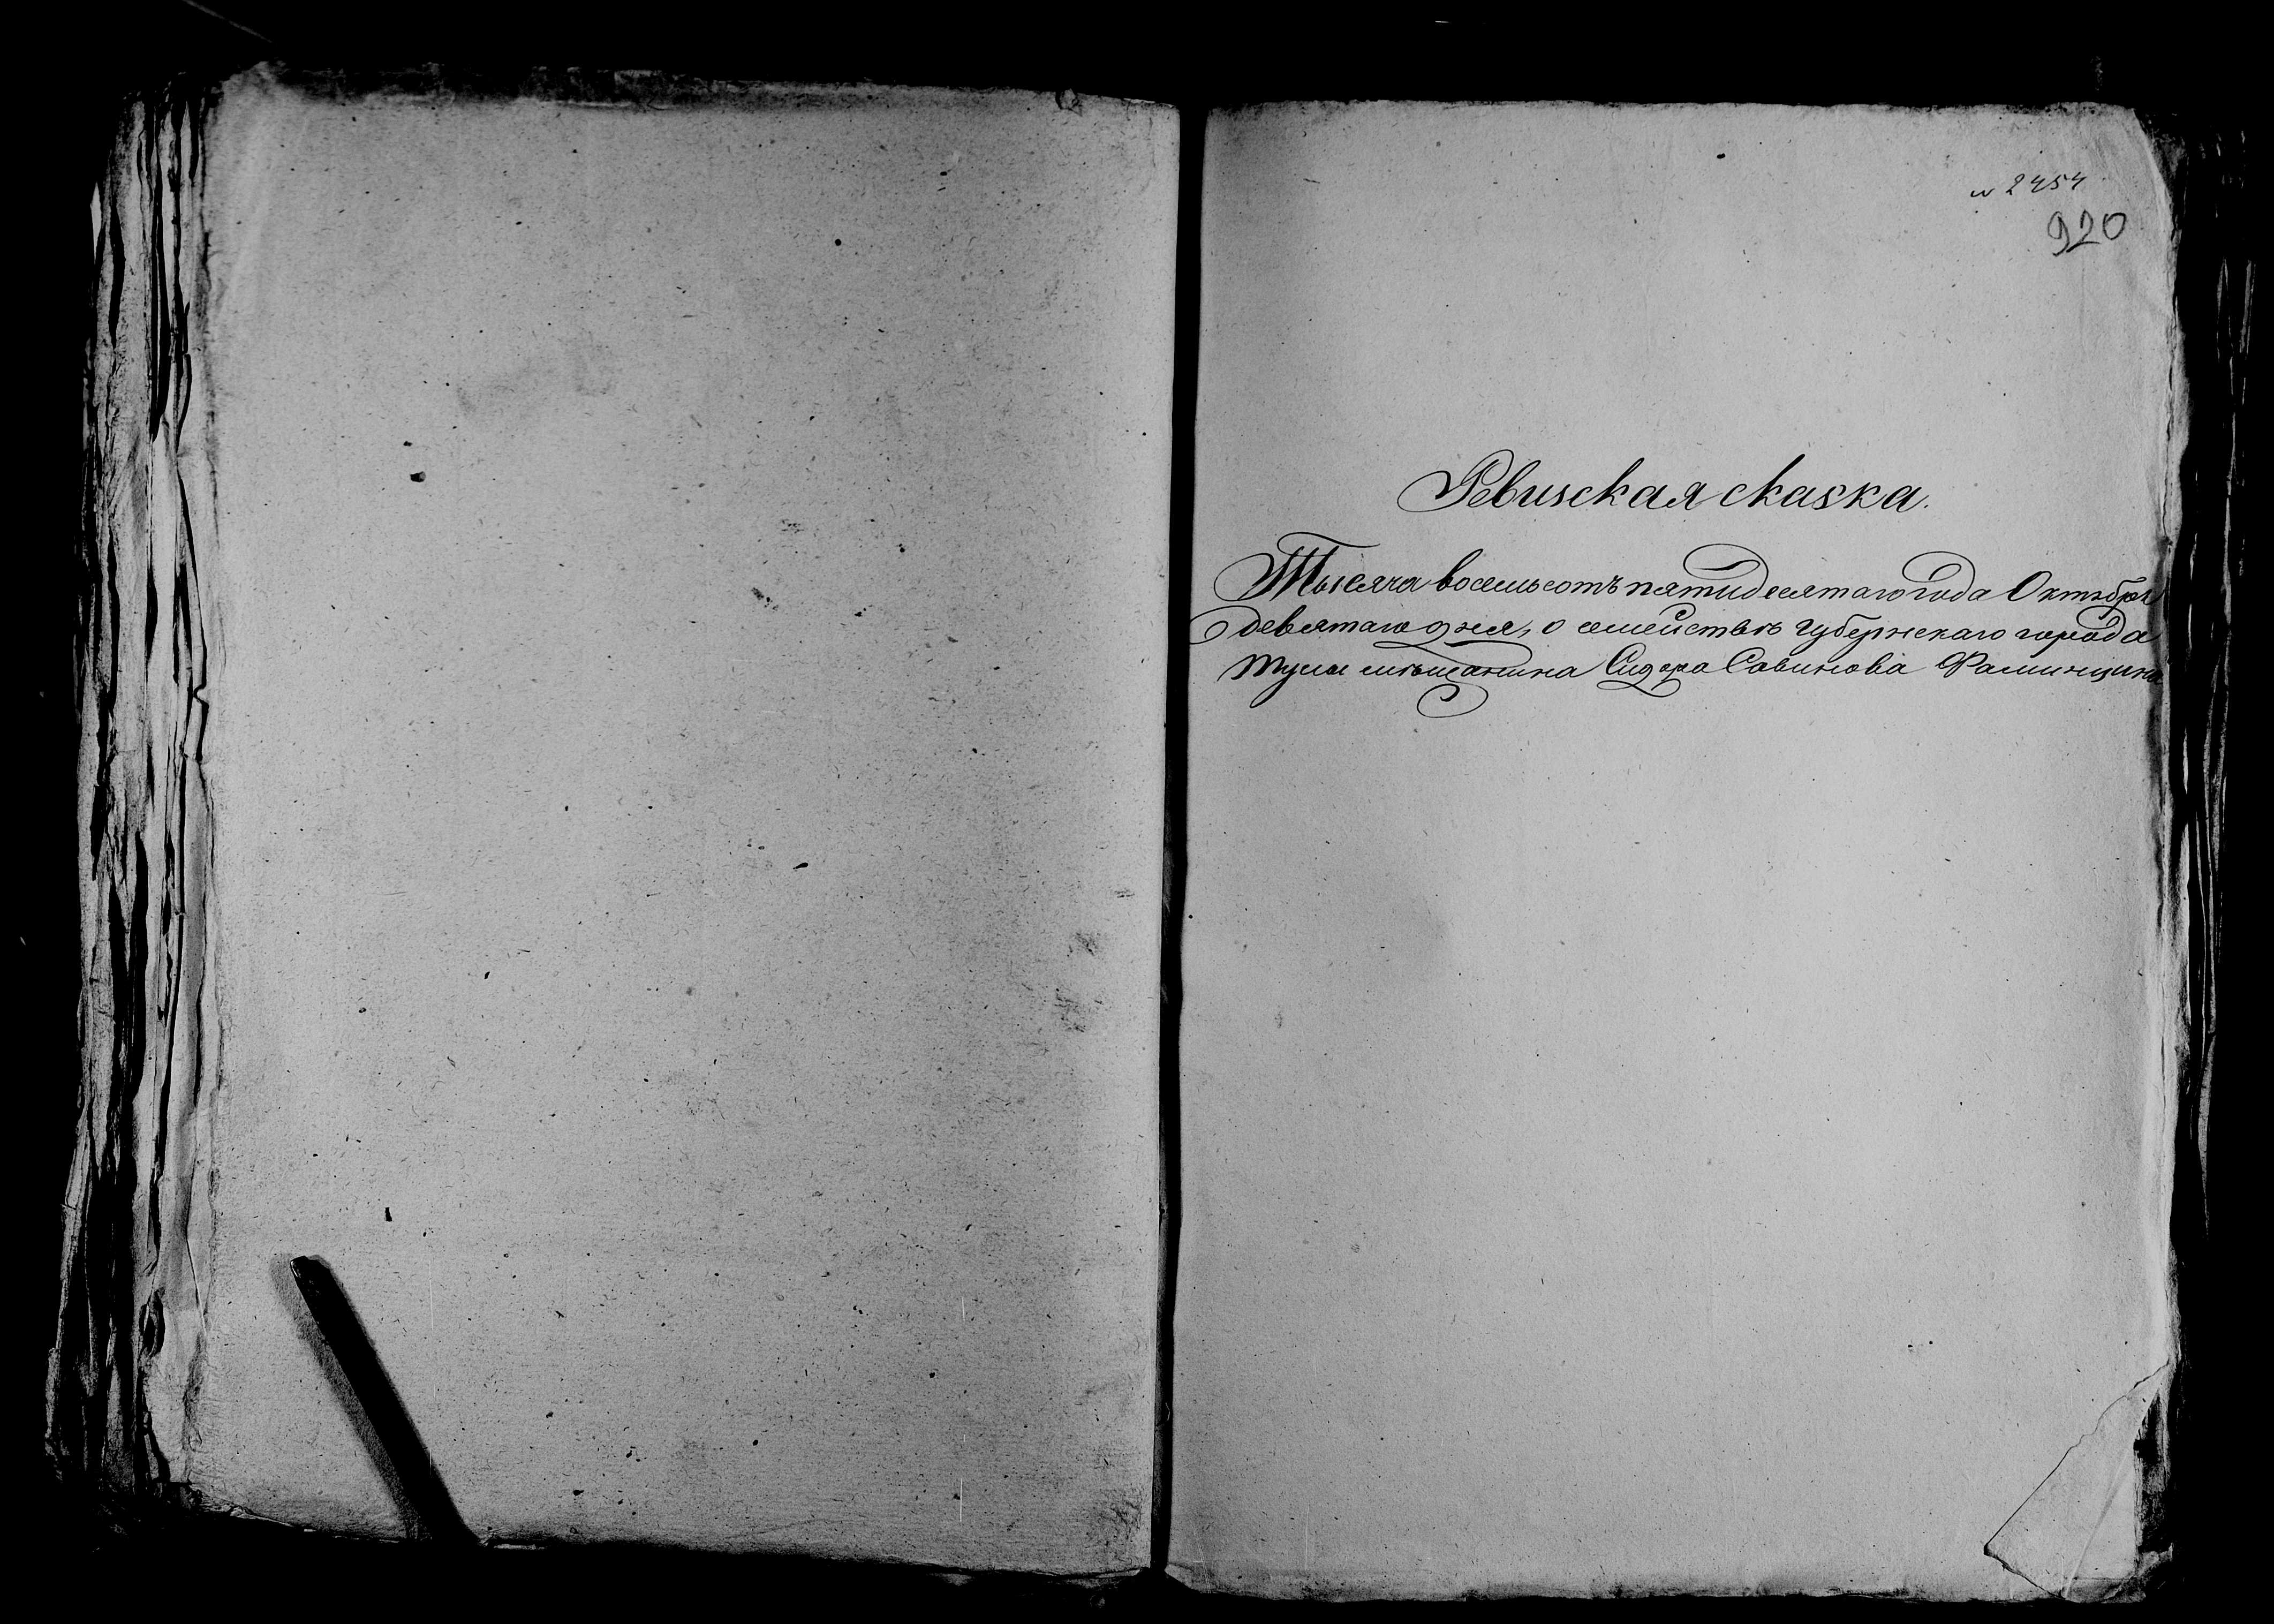 № 2454
920
Ревизская сказка.
Тысяча восемьсотъ пятидесятаго года Октября
девятаго дня, о семействѣ губернскаго города
Тулы мѣщанина Сидора Савинова Фаминцына